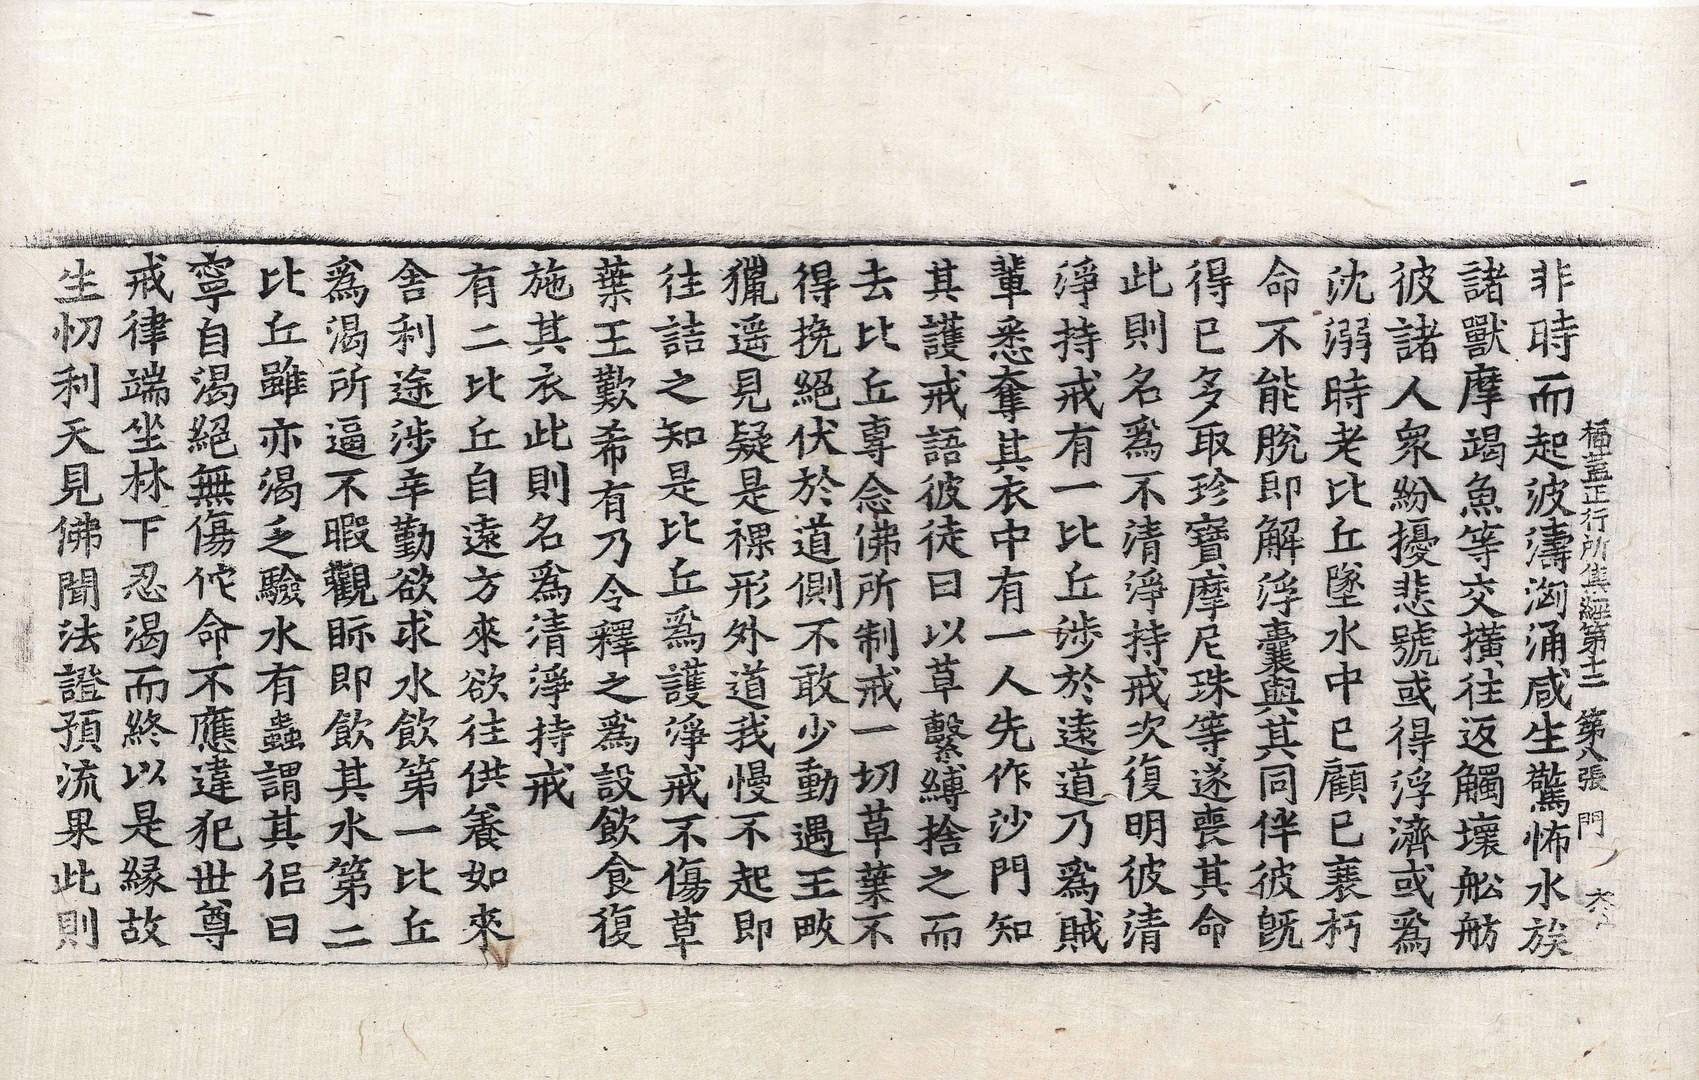 非時而起波濤洶涌咸生驚怖水族
諸獸摩竭魚等交撗往返觸壞舩舫
彼諸人衆紛擾悲號或得浮濟或爲
沈溺時老比丘墜水中已顧已衰朽
命不能脫即解浮囊與其同伴彼旣
得已多取珍寶摩尼珠等遂喪其命
此則名爲不清淨持戒次復明彼清
淨持戒有一比丘涉於遠道乃爲賊
輩悉奪其衣中有一人先作沙門知
其護戒語彼徒曰以草繫縛捨之而
去比丘專念佛所制戒一切草葉不
得挽絕伏於道側不敢少動遇王畋
獵遥見疑是裸形外道我慢不起即
往詰之知是比丘爲護淨戒不傷草
葉王歎希有乃令釋之爲設飮食復
施其衣此則名爲清淨持戒
有二比丘自遠方來欲往供養如來
舍利途涉辛勤欲求水飮第一比丘
爲渴所逼不暇觀眎即飮其水第二
比丘雖亦渴乏驗水有蟲謂其侣曰
寧自渴絕無傷佗命不應違犯世尊
戒律端坐林下忍渴而終以是緣故
生忉利天見佛聞法證預流果此則
福蓋正行所集經第十二 第八張 門